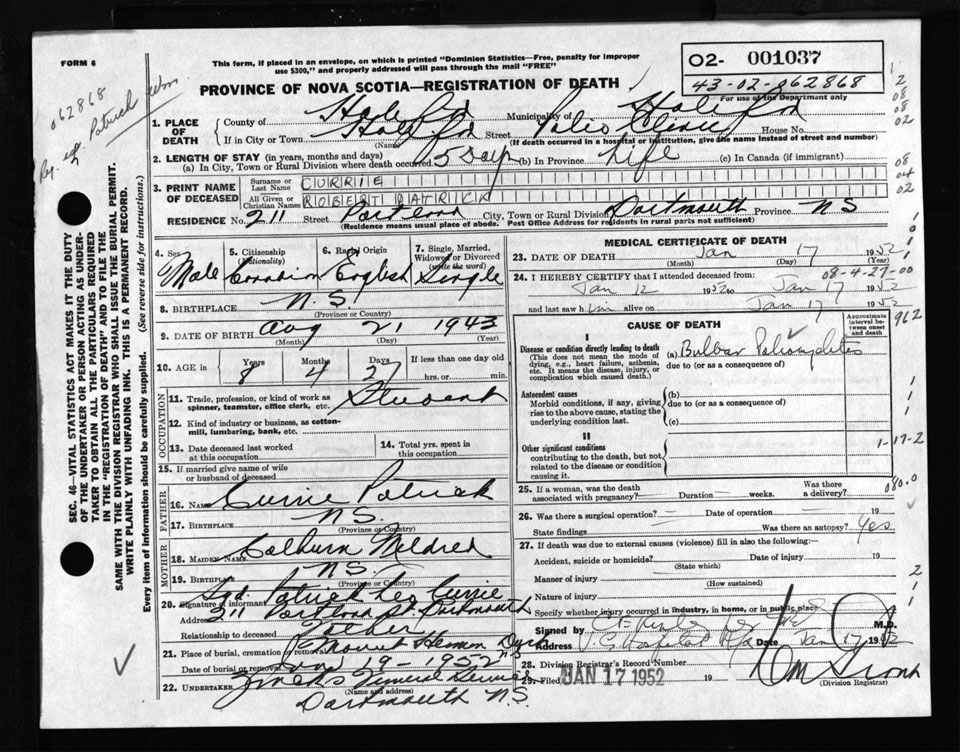 FORM 6
This form, if placed in an envelope, on which is printed "Dominion Statistics—Free, penalty for improper
use $300," and properly addressed will pass through the mail "FREE"
O2- 001037
43-02-062868
For use of the Department only
PROVINCE OF NOVA SCOTIA—REGISTRATION OF DEATH
062868
Patrick
1. PLACE OF DEATH County of Halifax Municipality of Halifax
If in City or Town Halifax Street Polio Clinic House No.
(Name) (If death occurred in a hospital or institution, give the name instead of street and number)
2. LENGTH OF STAY (in years, months and days)
(a) In City, Town or Rural Division where death occurred 5 days (b) In Province Life (c) In Canada (if immigrant)
3. PRINT NAME OF DECEASED Surname or Last Name CURRIE
All Given or Christian Names ROBERT PATRICK
RESIDENCE No. 211 Street Portland City, Town or Rural Division Dartmouth Province N S
(Residence means usual place of abode. Post Office Address for residents in rural parts not sufficient)
4. Sex Male
5. Citizenship (Nationality) Canadian
6. Racial Origin English
7. Single, Married, Widowed or Divorced (write the word) Single
8. BIRTHPLACE N.S.
(Province or Country)
9. DATE OF BIRTH Aug 21 1943
(Month) (Day) (Year)
10. AGE in Years 8 Months 4 Days 27 If less than one day old
hrs. or min.
OCCUPATION
11. Trade, profession, or kind of work as spinner, teamster, office clerk, etc. Student
12. Kind of industry or business, as cotton-mill, lumbering, bank, etc.
13. Date deceased last worked at this occupation
14. Total yrs. spent in this occupation
15. If married give name of wife or husband of deceased
FATHER
16. Name Currie Patrick
17. BIRTHPLACE N.S.
(Province or Country)
MOTHER
18. MAIDEN NAME Colburn Mildred
19. BIRTHPLACE N.S.
(Province or Country)
20. Signature of informant Sgd. Patrick Leo Currie
Address 211 Portland St. Dartmouth
Relationship to deceased Father
21. Place of burial, cremation or removal
Date of burial or removal Jan 19 - 1952
22. UNDERTAKER
(Name and address)
Dartmouth N.S.
MEDICAL CERTIFICATE OF DEATH
23. DATE OF DEATH Jan 17 1952
(Month) (Day)
24. I HEREBY CERTIFY that I attended deceased from: 08-4-27-00
Jan 12 1952 to Jan 17 1952
and last saw him alive on Jan 17 1952
CAUSE OF DEATH
Approximate interval between onset and death
962
I
Disease or condition directly leading to death
(This does not mean the mode of dying, e.g., heart failure, asthenia, etc. It means the disease, injury, or complication which caused death.)
(a) Bulbar Poliomyelitis
due to (or as a consequence of)
Antecedent causes
Morbid conditions, if any, giving rise to the above cause, stating the underlying condition last.
(b)
due to (or as a consequence of)
(c)
II
Other significant conditions contributing to the death, but not related to the disease or condition causing it.
1-17-2
25. If a woman, was the death associated with pregnancy? Duration weeks. Was there a delivery?
080.0
26. Was there a surgical operation? Date of operation
State findings Was there an autopsy? Yes
27. If death was due to external causes (violence) fill in also the following:—
Accident, suicide or homicide? Date of injury 19
(State which)
Manner of injury
(How sustained)
Nature of injury
Specify whether injury occurred in industry, in home, or in public place
Signed by M.D.
Address Date Jan 17 1952
28. Division Registrar's Record Number
29. Filed JAN 17 1952 19
(Division Registrar)
SEC. 46—VITAL STATISTICS ACT MAKES IT THE DUTY
OF THE UNDERTAKER OR PERSON ACTING AS UNDER-
TAKER TO OBTAIN ALL THE PARTICULARS REQUIRED
IN THE "REGISTRATION OF DEATH" AND TO FILE THE
SAME WITH THE DIVISION REGISTRAR WHO SHALL ISSUE THE BURIAL PERMIT.
WRITE PLAINLY WITH UNFADING INK. THIS IS A PERMANENT RECORD.
Every item of information should be carefully supplied. (See reverse side for instructions.)